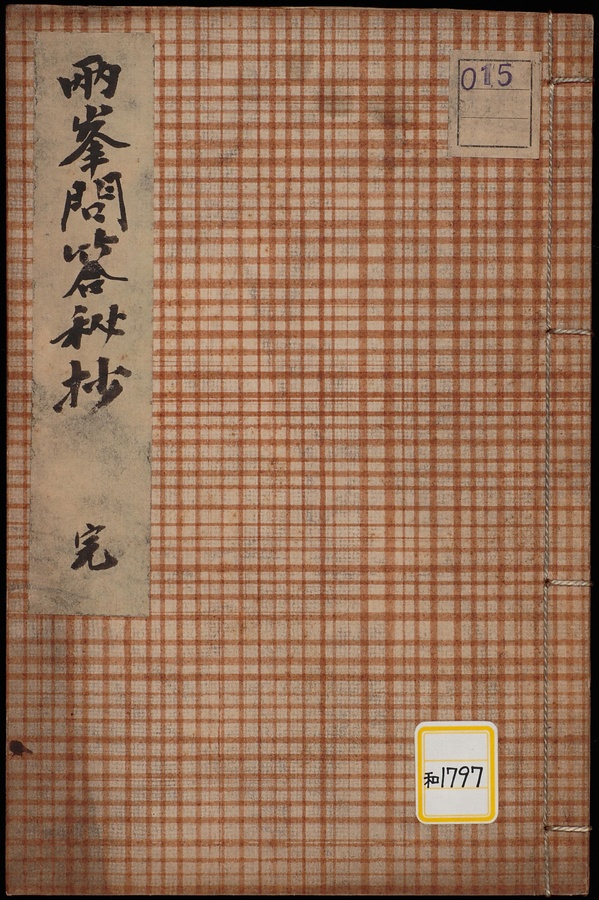 兩峯問答秘抄 完
015
和1797